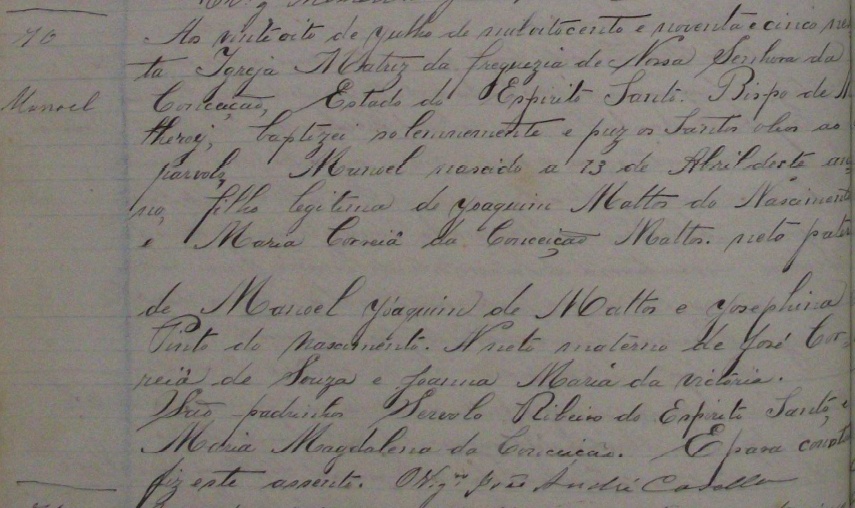 70
Manoel
Aos vinte oito de Julho de mil oitocento e noventa e cinco nes
ta Igreja Matriz da freguezia de Nossa Senhora da
Conceição, Estado do Espirito Santo. Bispo de Ni
theroy, baptizei solemnemente e puz os Santos olios ao
parvolo, Manoel nascido a 13 de Abril deste an
no, filho legitimo de Joaquim Mattos do Nascimento
e Maria Correiã da Conceição Mattos. neto pater
de Manoel Joaquim de Mattos e Josephina
Pinto do Nascimento. Neto materno de José Cor-
reiã de Souza e Joanna Maria da Victoria.
São padrinhos Servolo Ribeiro do Espirito Santo, e
Maria Magdalena da Conceição. E para constar
fiz este assento. O Vigrº André Casella